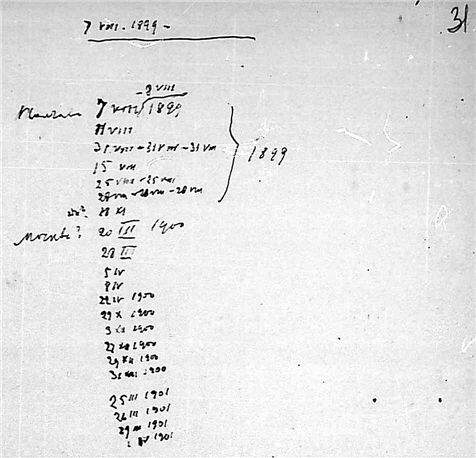 31
7 VIII - 1899 -
- 9 VIII
7 VIII 1899
11 VIII
31 VIII - 31 VIII - 31 VIII
1899
15 VIII
25 VIII - 25 VIII
28 VIII - 28 VIII - 28 VIII
28 XI
20 III 1900
28 III
5 IV
8 IV
22 IV 1900
29 X 1900
3 XII 1900
27 XII 1900
29 XII 1900
31 XII 1900
25 III 1901
26 III 1901
29 III 1901
IV 1901